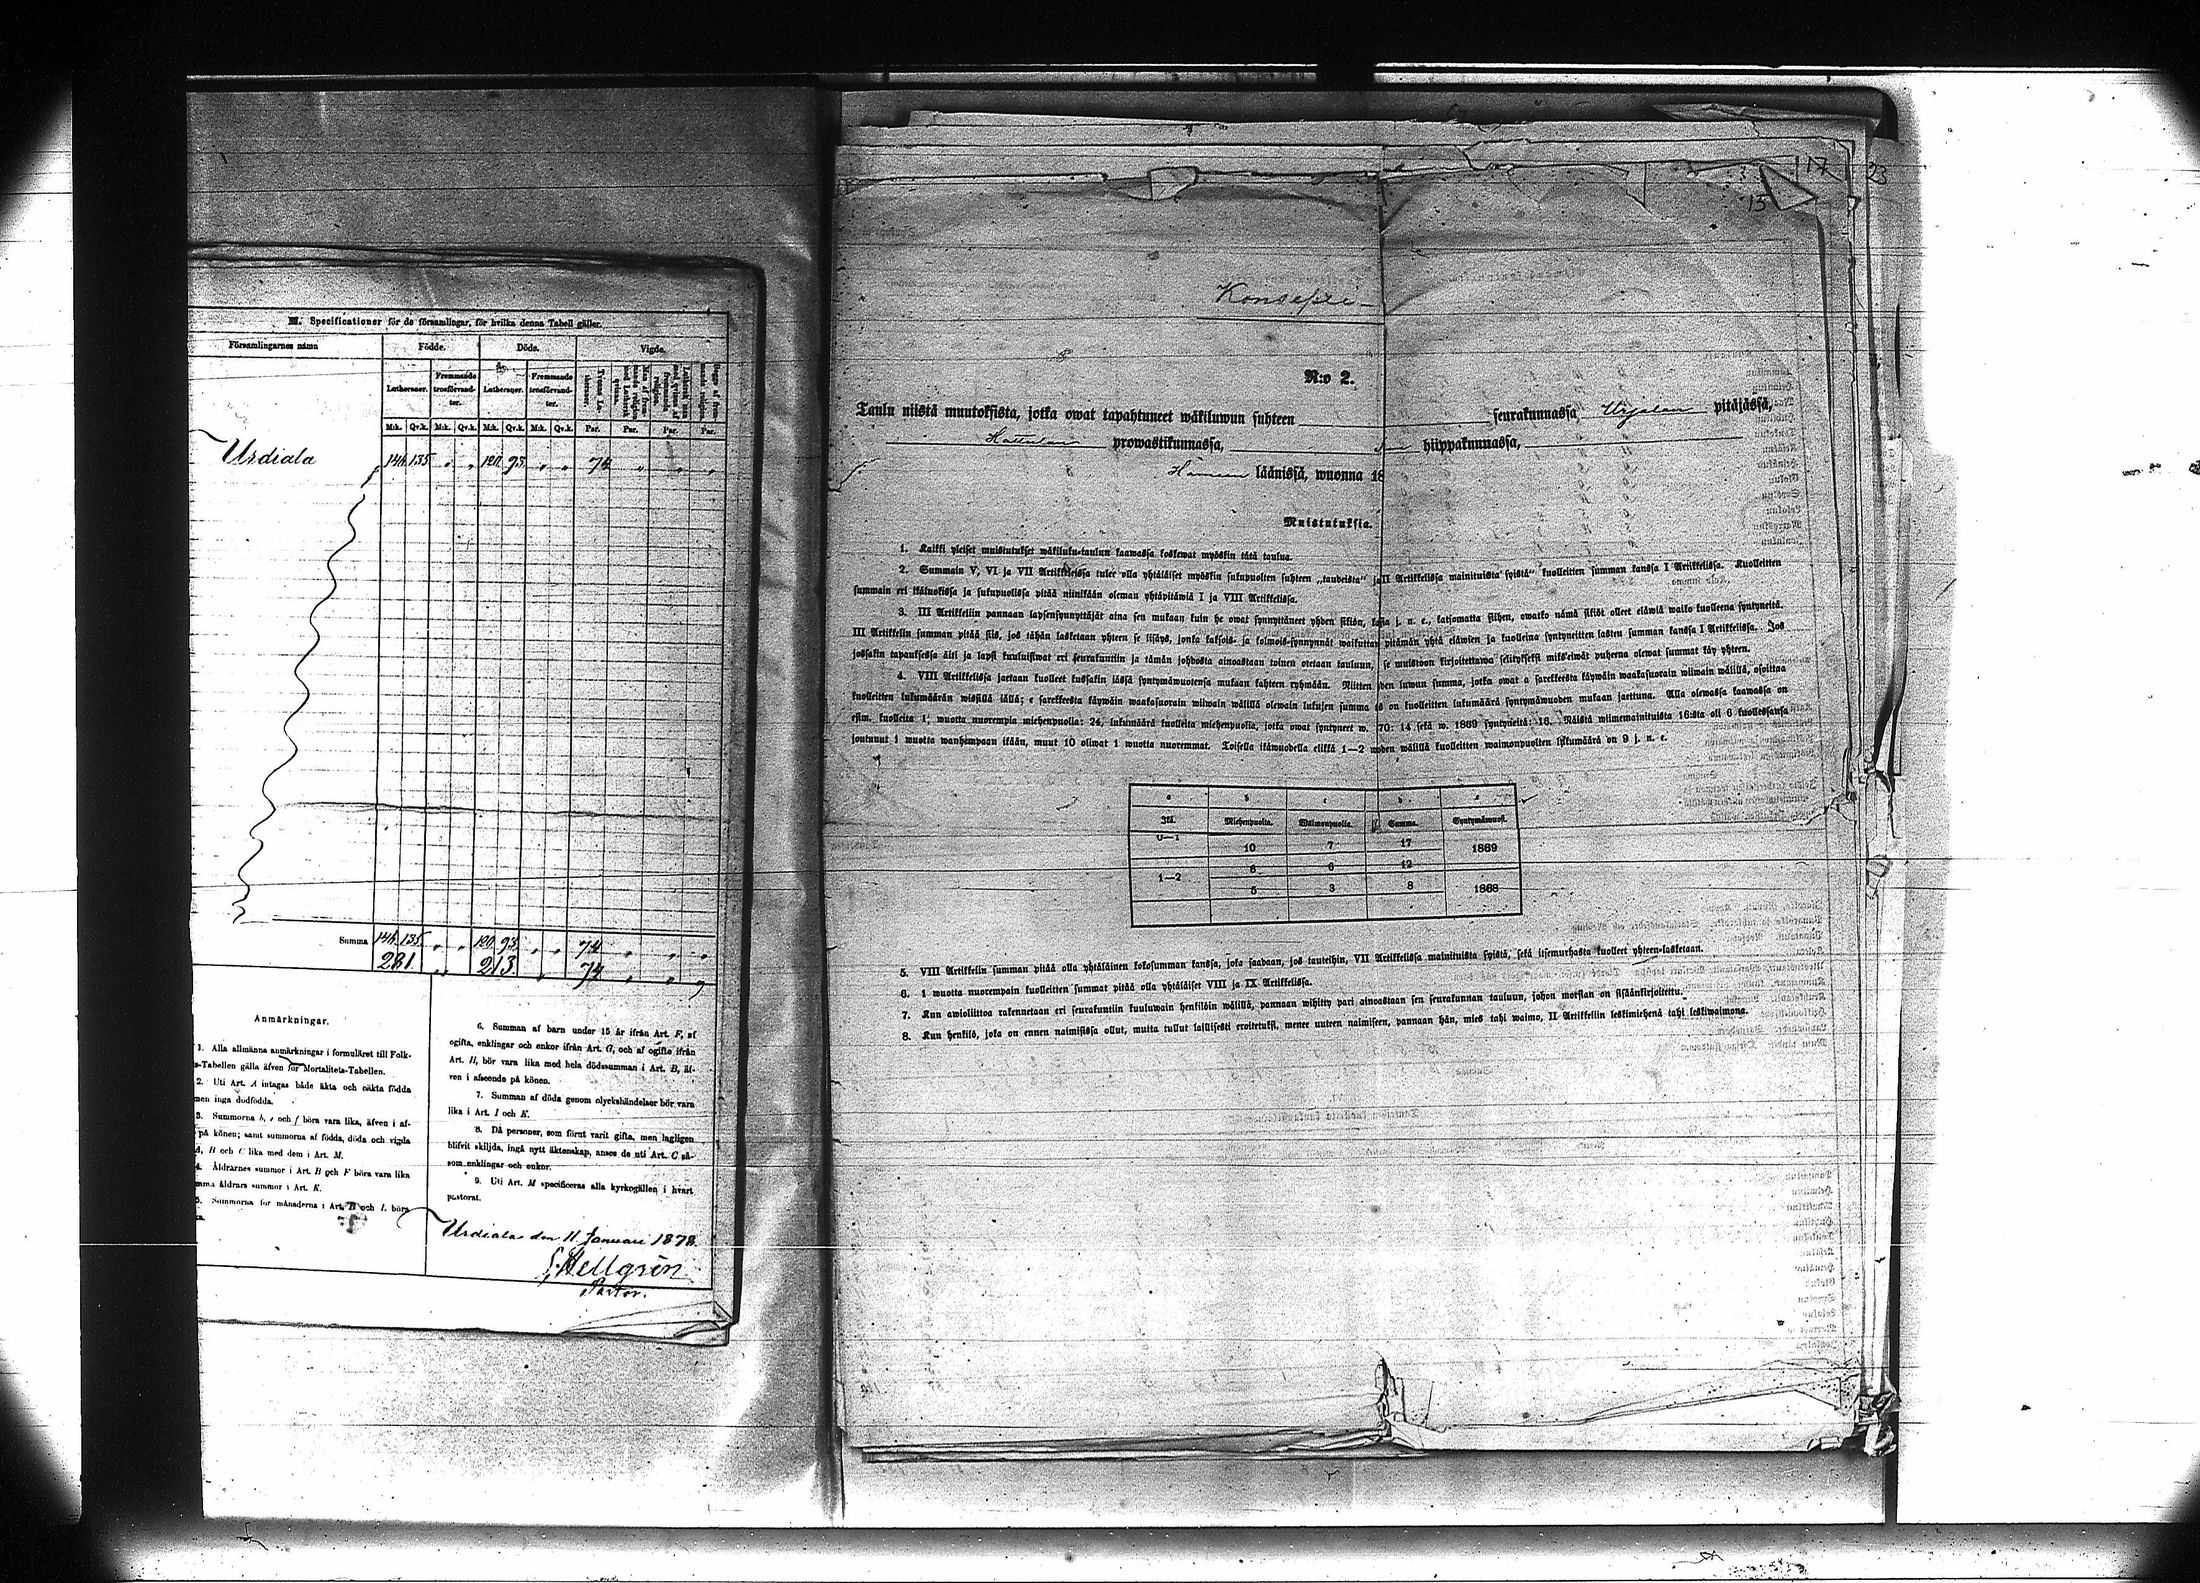 M. Specificationer för de församlingar, för hvilka denna Tabell gäller.
Församlingarnes namn
Födde. Döde. Vigde.
Lutheraner. Fremmande trosförvandter. Lutheraner. Fremmande trosförvandter.
M:k. Qv.k. M:k. Qv.k. M:k. Qv.k. M:k. Qv.k. Par. Par. Par. Par.
Urdiala 146 135 " " 120 93 " " 74 " " "
Summa 146 135 " " 120 93 " " 74 " " "
281 " 213 " 74 " " "
Anmärkningar.
1. Alla allmänna anmärkningar i formuläret till Folk-
s-Tabellen gälla äfven för Mortalitets-Tabellen.
2. Uti Art. A intagas både äkta och oäkta födda
men inga dödfödda.
3. Summorna b, e och f böra vara lika, äfven i af-
på könen; samt summorna af födda, döda och vigda
A, B och C lika med dem i Art. M.
4. Åldrarnes summor i Art. B och F böra vara lika
mma åldrars summor i Art. K.
5. Summorna för månaderna i Art. B och L böra
ka.
6. Summan af barn under 15 år ifrån Art. F, af
ogifta, enklingar och enkor ifrån Art. G, och af ogifta ifrån
Art. H, bör vara lika med hela dödssumman i Art. B, äf-
ven i afseende på könen.
7. Summan af döda genom olyckshändelser bör vara
lika i Art. I och K.
8. Då personer, som förut varit gifta, men lagligen
blifvit skiljda, ingå nytt äktenskap, anses de uti Art. C så-
som enklingar och enkor.
9. Uti Art. M specificeras alla kyrkogällen i hvart
pastorat.
Urdiala den 11 Januari 1878.
Hellgrén
Pastor.
17 23
15
N:o 2.
Taulu niistä muutoksista, jotka owat tapahtuneet wäkiluwun suhteen seurakunnassa Urjalan pitäjässä,
Hattulan prowastikunnassa, hiippakunnassa,
Hämeen läänissä, wuonna 18
Muistutuksia.
1. Kaikki yleiset muistutukset wäkiluku-taulun kaawassa koskewat myöskin tätä taulua.
2. Summain V, VI ja VII Artikkeleissa tulee olla yhtäläiset myöskin sukupuolten suhteen „taudeista" ja II Artikkelissa mainituista syistä" kuolleitten summan kanssa I Artikkelissa. Kuolleitten
summain eri ikäluokissa ja sukupuolissa pitää niinikään oleman yhtäpitäwiä I ja VIII Artikkelissa.
3. III Artikkeliin pannaan lapsensynnyttäjät aina sen mukaan kuin he owat synnyttäneet yhden sikiön, kaksi j. n. e., katsomatta siihen, owatko nämä sikiöt olleet eläwiä waiko kuolleena syntyneitä.
III Artikkelin summan pitää siis, jos tähän lasketaan yhteen se lisäys, jonka kaksois- ja kolmois-synnynnät waikuttaa, pitämän yhtä eläwien ja kuolleina syntyneitten lasten summan kanssa I Artikkelissa. Jos
jossakin tapauksessa äiti ja lapsi kuuluisiwat eri seurakuntiin ja tämän johdosta ainoastaan toinen otetaan tauluun, se muistoon kirjoitettawa selitykseksi miks'eiwät puheena olewat summat käy yhteen.
4. VIII Artikkelissa jaetaan kuolleet kussakin iässä syntymäwuotensa mukaan kahteen ryhmään. Niitten luwun summa, jotka owat a sarekkeesta käywäin waakasuorain wiiwain wälillä, osoittaa
kuolleitten lukumäärän wissillä iällä; e sarekkeesta käywäin waakasuorain wiiwain wälillä olewain lukujen summa on kuolleitten lukumäärä syntymäwuoden mukaan jaettuna. Alla olewassa kaawassa on
esim. kuolleita 1 wuotta nuorempia miehenpuolia: 24, lukumäärä kuolleita miehenpuolia, jotka owat syntyneet w. 70: 14 sekä w. 1869 syntyneitä: 16. Näistä wiimemainituista 16:sta oli 6 kuollessansa
joutunut 1 wuotta wanhempaan ikään, muut 10 oliwat 1 wuotta nuoremmat. Toisella ikäwuodella elikkä 1—2 wuoden wälillä kuolleitten waimonpuolten lukumäärä on 9 j. n. e.
a b c d e
Ikä. Miehenpuolia. Waimonpuolia. Summa. Syntymäwuosi.
0—1
10 7 17 1869
6 6 12
1—2
5 3 8 1868
5. VIII Artikkelin summan pitää olla yhtäläinen kokosumman kanssa, joka saadaan, jos tauteihin, VII Artikkelissa mainituista syistä, sekä itsemurhasta kuolleet yhteen-lasketaan.
6. 1 wuotta nuorempain kuolleitten summat pitää olla yhtäläiset VIII ja IX Artikkelissa.
7. Kun awioliittoa rakennetaan eri seurakuntiin kuuluwain henkilöin wälillä, pannaan wihitty pari ainoastaan sen seurakunnan tauluun, johon morsian on sisäänkirjoitettu.
8. Kun henkilö, joka on ennen naimisissa ollut, mutta tullut laillisesti eroitetuksi, menee uuteen naimiseen, pannaan hän, mies tahi waimo, II Artikkeliin leskimiehenä tahi leskiwaimona.